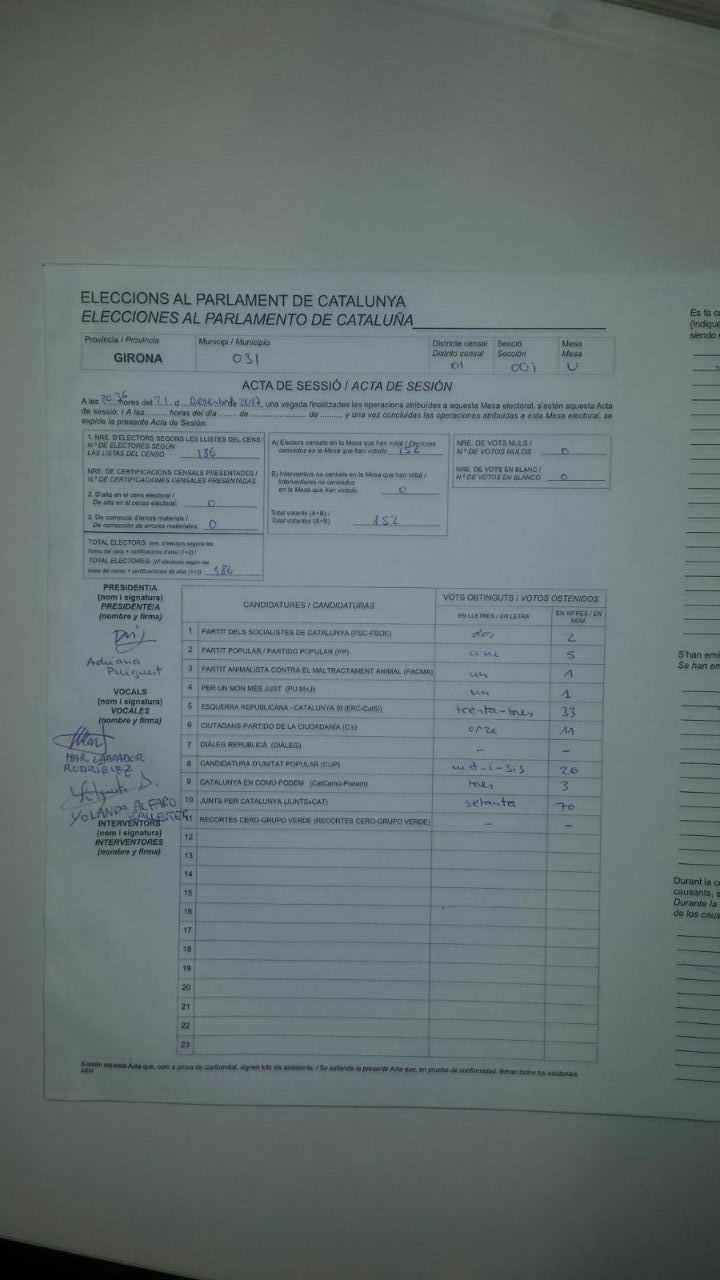 ELECCIONS AL PARLAMENT DE CATALUNYA
ELECCIONES AL PARLAMENTO DE CATALUÑA
Província / Provincia
GIRONA
Municipi / Municipio
031
Districte censal
Distrito censal
01
Secció
Sección
001
Mesa
Mesa
U
ACTA DE SESSIÓ / ACTA DE SESIÓN
A les 20:36 hores del 21 d Desembre de 2017, una vegada finalitzades les operacions atribuïdes a aquesta Mesa electoral, s'estén aquesta Acta
de sessió: / A las ........ horas del día ....... de ................ de ......... y una vez concluidas las operaciones atribuidas a esta Mesa electoral, se
expide la presente Acta de Sesión:
1. NRE. D'ELECTORS SEGONS LES LLISTES DEL CENS /
N.º DE ELECTORES SEGÚN
LAS LISTAS DEL CENSO 186
NRE. DE CERTIFICACIONS CENSALS PRESENTADES /
N.º DE CERTIFICACIONES CENSALES PRESENTADAS
2. D'alta en el cens electoral /
De alta en el censo electoral: 0
3. De correcció d'errors materials /
De corrección de errores materiales: 0
TOTAL ELECTORS: (nre. d'electors segons les
llistes del cens + certificacions d'alta) (1+2) /
TOTAL ELECTORES: (nº electores según las
listas del censo + certificaciones de alta) (1+2) 186
A) Electors censats en la Mesa que han votat / Electores
censados en la Mesa que han votado 152
B) Interventors no censats en la Mesa que han votat /
Interventores no censados
en la Mesa que han votado 0
Total votants (A+B) /
Total votantes (A+B) 152
NRE. DE VOTS NULS /
N.º DE VOTOS NULOS 0
NRE. DE VOTS EN BLANC /
N.º DE VOTOS EN BLANCO 0
PRESIDENT/A
(nom i signatura)
PRESIDENTE/A
(nombre y firma)
Adriana
Puigvert
VOCALS
(nom i signatura)
VOCALES
(nombre y firma)
MAR LABRADOR
RODRIGUEZ
YOLANDA ALFARO
BALLESTER
INTERVENTORS
(nom i signatura)
INTERVENTORES
(nombre y firma)
CANDIDATURES / CANDIDATURAS
VOTS OBTINGUTS / VOTOS OBTENIDOS
EN LLETRES / EN LETRA
EN XIFRES / EN NÚM
1 PARTIT DELS SOCIALISTES DE CATALUNYA (PSC-PSOE) dos 2
2 PARTIT POPULAR / PARTIDO POPULAR (PP) cinc 5
3 PARTIT ANIMALISTA CONTRA EL MALTRACTAMENT ANIMAL (PACMA) un 1
4 PER UN MÓN MÉS JUST (PUM+J) un 1
5 ESQUERRA REPUBLICANA - CATALUNYA SÍ (ERC-CatSí) trenta-tres 33
6 CIUTADANS-PARTIDO DE LA CIUDADANÍA (C's) onze 11
7 DIÀLEG REPUBLICÀ (DIÀLEG) - -
8 CANDIDATURA D'UNITAT POPULAR (CUP) vint-i-sis 26
9 CATALUNYA EN COMÚ-PODEM (CatComú-Podem) tres 3
10 JUNTS PER CATALUNYA (JUNTSxCAT) setanta 70
11 RECORTES CERO-GRUPO VERDE (RECORTES CERO-GRUPO VERDE) - -
12
13
14
15
16
17
18
19
20
21
22
23
S'estén aquesta Acta que, com a prova de conformitat, signen tots els assistents. / Se extiende la presente Acta que, en prueba de conformidad, firman todos los asistentes.
Es fa
(Indique
siendo
S'han
Se han
Durant la
causants,
Durante la
de los